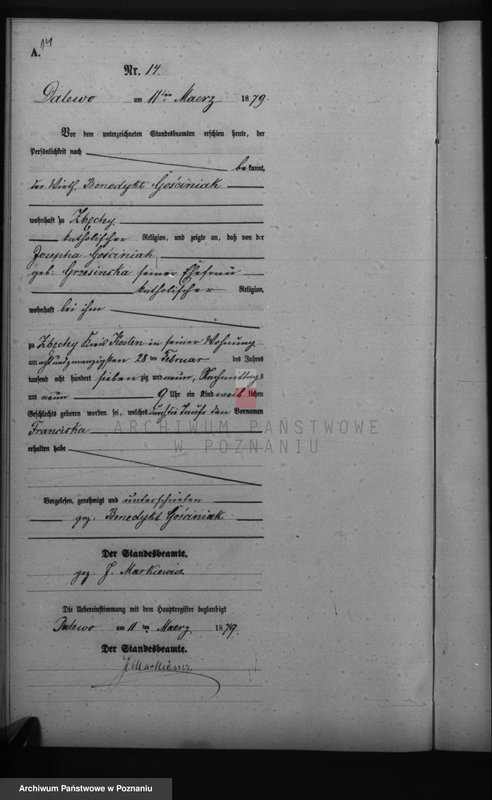 A. 14
Nr. 14.
Dalewo am 11ten Maerz 1879
Vor dem unterzeichneten Standesbeamten erschien heute, der
Persönlichkeit nach
bekannt,
der Wirth Benedykt Gościniak
wohnhaft zu Zbęchy
katholischer Religion, und zeigte an, daß von der
Josepha Gościniak,
geb: Grzesinska seiner Ehefrau
katholischer Religion,
wohnhaft bei ihm
zu Zbechy Kreis Kosten in seiner Wohnung
am achtundzwanzigsten 28 ten Februar des Jahres
tausend acht hundert sieben zig und neun, Nachmittags
um neun 9 Uhr ein Kind weiblichen
Geschlechts geboren worden sei, welches durch die Taufe den Vornamen
Franciska
erhalten habe
Vorgelesen, genehmigt und unterschrieben
gez. Benedykt Gościniak
Der Standesbeamte.
gez. J. Markiewicz
Die Uebereinstimmung mit dem Hauptregister beglaubigt
Dalewo am 11 ten Maerz 1879.
Der Standesbeamte.
J Markiewicz
ARCHIWUM PAŃSTWOWE
W POZNANIU
Archiwum Państwowe w Poznaniu